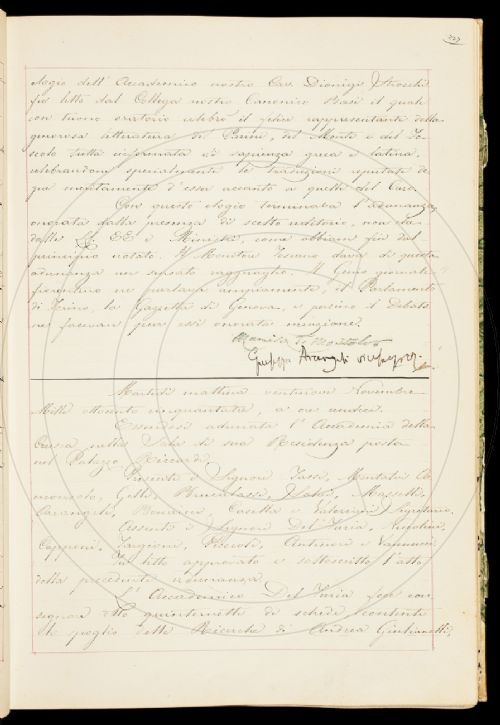 elogio dell' Accademico nostro Cav. Dionigi Strocchi
fu letto dal Collega nostro Canonico Basi il quale
con tuono oratorio celebrò il felice rappresentante della
generosa letteratura di Parini, del Monti e del Fo-
scolo tutta informata di sapienza greca e latina,
celebrandone specialmente le traduzioni reputate de-
gne meritamente d'essere accanto a quelle del Caro.
Con questo elogio terminava l'adunanza
onorata dalla presenza di scelto uditorio, non che
dalle LL. EE. i Ministri, come abbiam fin dal
principio notato. Il Monitore Toscano dava di questa
adunanza un sensato ragguaglio. Il Genio giornale
fiorentino ne parlava ampiamente, il Parlamento
di Torino, la Gazzetta di Genova, e persino il Débats
ne facevan pur essi onorata menzione.
Giuseppe Arcangeli vicesegret.
Martedì mattina ventinove Novembre
Mille ottocento cinquantatre, a ore undici.
Essendosi adunata l'Accademia della
Crusca nella Sala di sua Residenza posta
nel Palazzo Riccardi,
Presenti i Signori Tassi, Montalvi
Gelli, Bianchi, Masselli,
Arcangeli, Bonaini, Casella e Valeriani Segretario.
Assenti i Signori Del Furia, Niccolini,
Capponi, Targioni, Puccioti, Antinori e Vannucci
Fu letto approvato e sottoscritto l'atto
della precedente adunanza.
L'Accademico Del Furia fece con-
segnare otto quinternetti di schede contenti
lo spoglio delle Ricerche di Andrea Giulianelli,